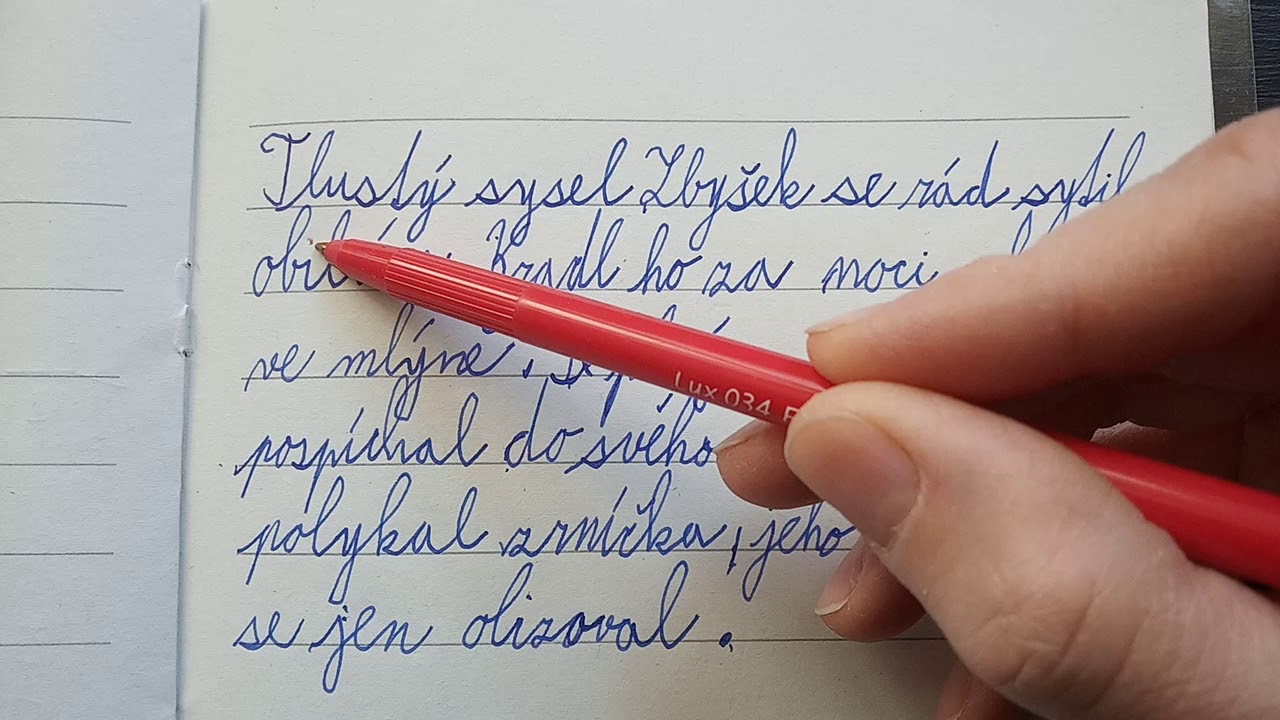 Tlustý sysel Zbyšek se rád sytil
Kradl ho za noci
ve mlýně.
pospíchal do svého
polykal zrníčka, jeho
se jen olizoval.
Lux 034